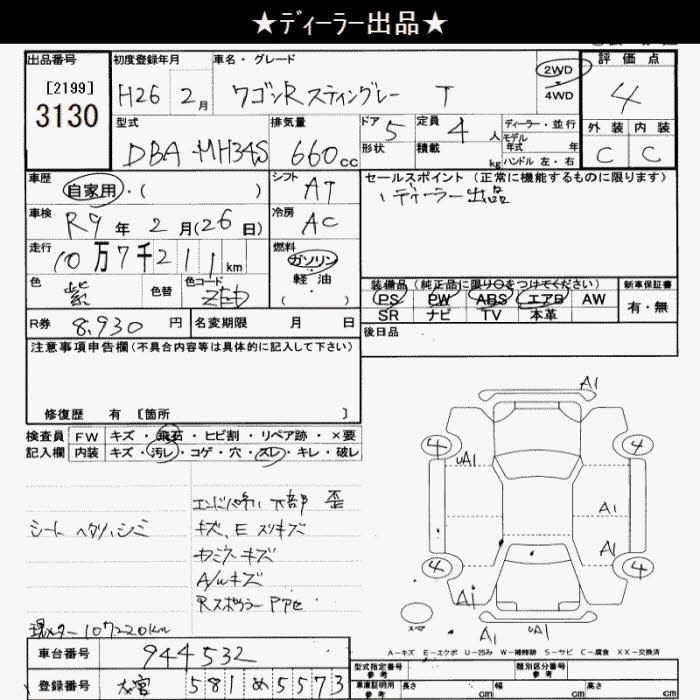 ★ディーラー出品★
出品番号 初度登録年月 車名・グレード 評価点
[2199] 3130 H26 2月 ワゴンR スティングレー T 2WD 4WD 4
型式 排気量 ドア 5 定員 4人 ディーラー・並行 外装 内装
DBA-MH34S 660cc 形状 積載 kg モデル年式 年 ハンドル 左・右 C C
車歴 自家用・( ) シフト AT セールスポイント(正常に機能するものに限ります)
ディーラー出品
車検 R9年2月(26日) 冷房 AC
走行 10万7千211km 燃料 ガソリン
軽油
( ・ )
色 紫 色替 色コード ZED 装備品(純正品に限り○をつけてください) 新車保証書
PS PW ABS エアB AW 有・無
SR ナビ TV 本革
R券 8,930円 名変期限 月 日 後日品
注意事項申告欄(不具合内容等は具体的に記入して下さい)
修復歴 有 〔箇所 〕
検査員 FW キズ・飛石・ヒビ割・リペア跡・×要
記入欄 内装 キズ・汚レ・コゲ・穴・スレ・キレ・破レ
下部 歪
シート ヘタリ、シミ キズ、E スリキズ
キズ
A/Wキズ
現メーター 107220km
A1
4 4
uA1
A1
A1
4 4
A1
スペア A1 uA1
A-キズ E-エクボ U-凹み W-補修跡 S-サビ C-腐食 XX-交換済
車台番号 944532 型式指定番号 参考 類別区分番号 参考
登録番号 大宮 581 め 5573 車庫証明用 参考 長さ cm 幅 cm 高さ cm